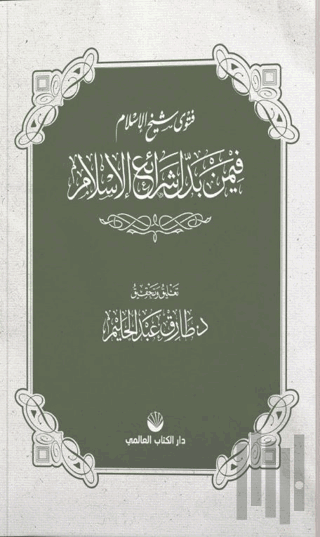 فتوى شيخ الإسلام
فيمن بدل شرائع الإسلام
تعليق وتحقيق
د. طارق عبد الحليم
دار الكتاب العالمي